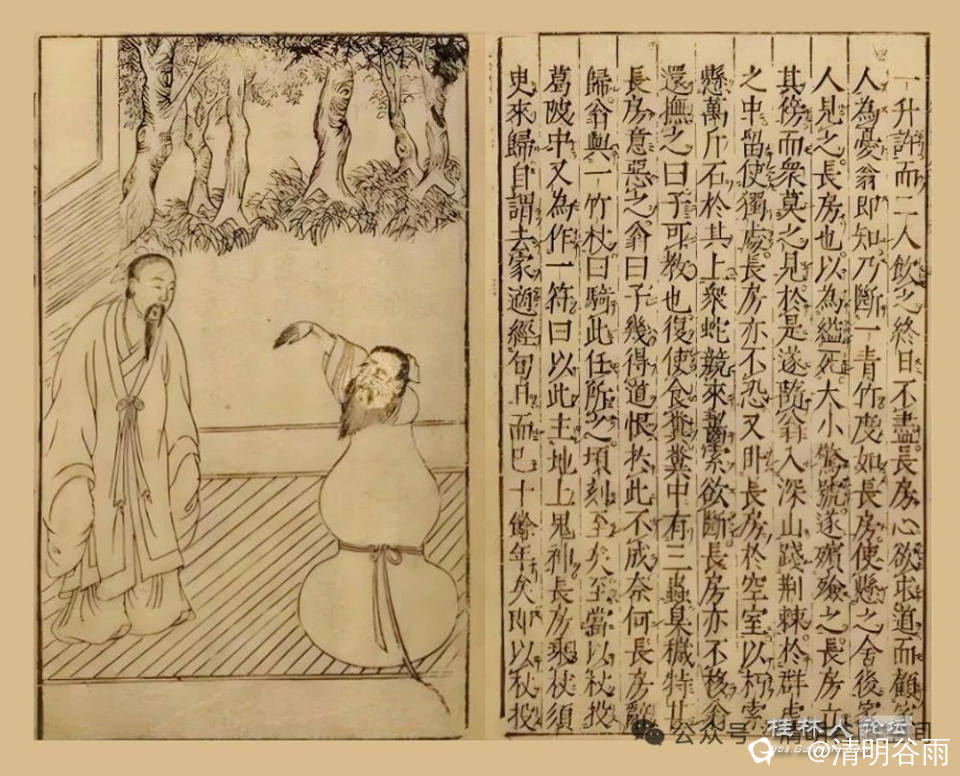 一升許而二人飲之終日不盡。長房心欲求道而顧家
人為憂翁即知乃斷一青竹度如長房使懸之舍後家
人見之。長房也。以為縊死。大小驚號。遂殯殮之。長房立
其傍而衆莫之見。於是遂隨翁入深山踐荆棘於群虎
之中。留使獨處。長房亦不恐又卧長房於空室。以朽索
懸萬斤石於其上衆蛇競來齧索欲斷。長房亦不移翁
還撫之曰子可教也復使食糞糞中有三蟲臭穢特甚
長房意惡之翁曰子幾得道恨於此不成奈何長房辭
歸翁與一竹杖曰騎此任所之頃刻至矣至當以杖投
葛陂中又為作一符曰以此主地上鬼神長房乘杖須
臾來歸自謂去家適經旬日而已十餘年矣即以杖投
公众号
桂林人论坛
@清明谷雨